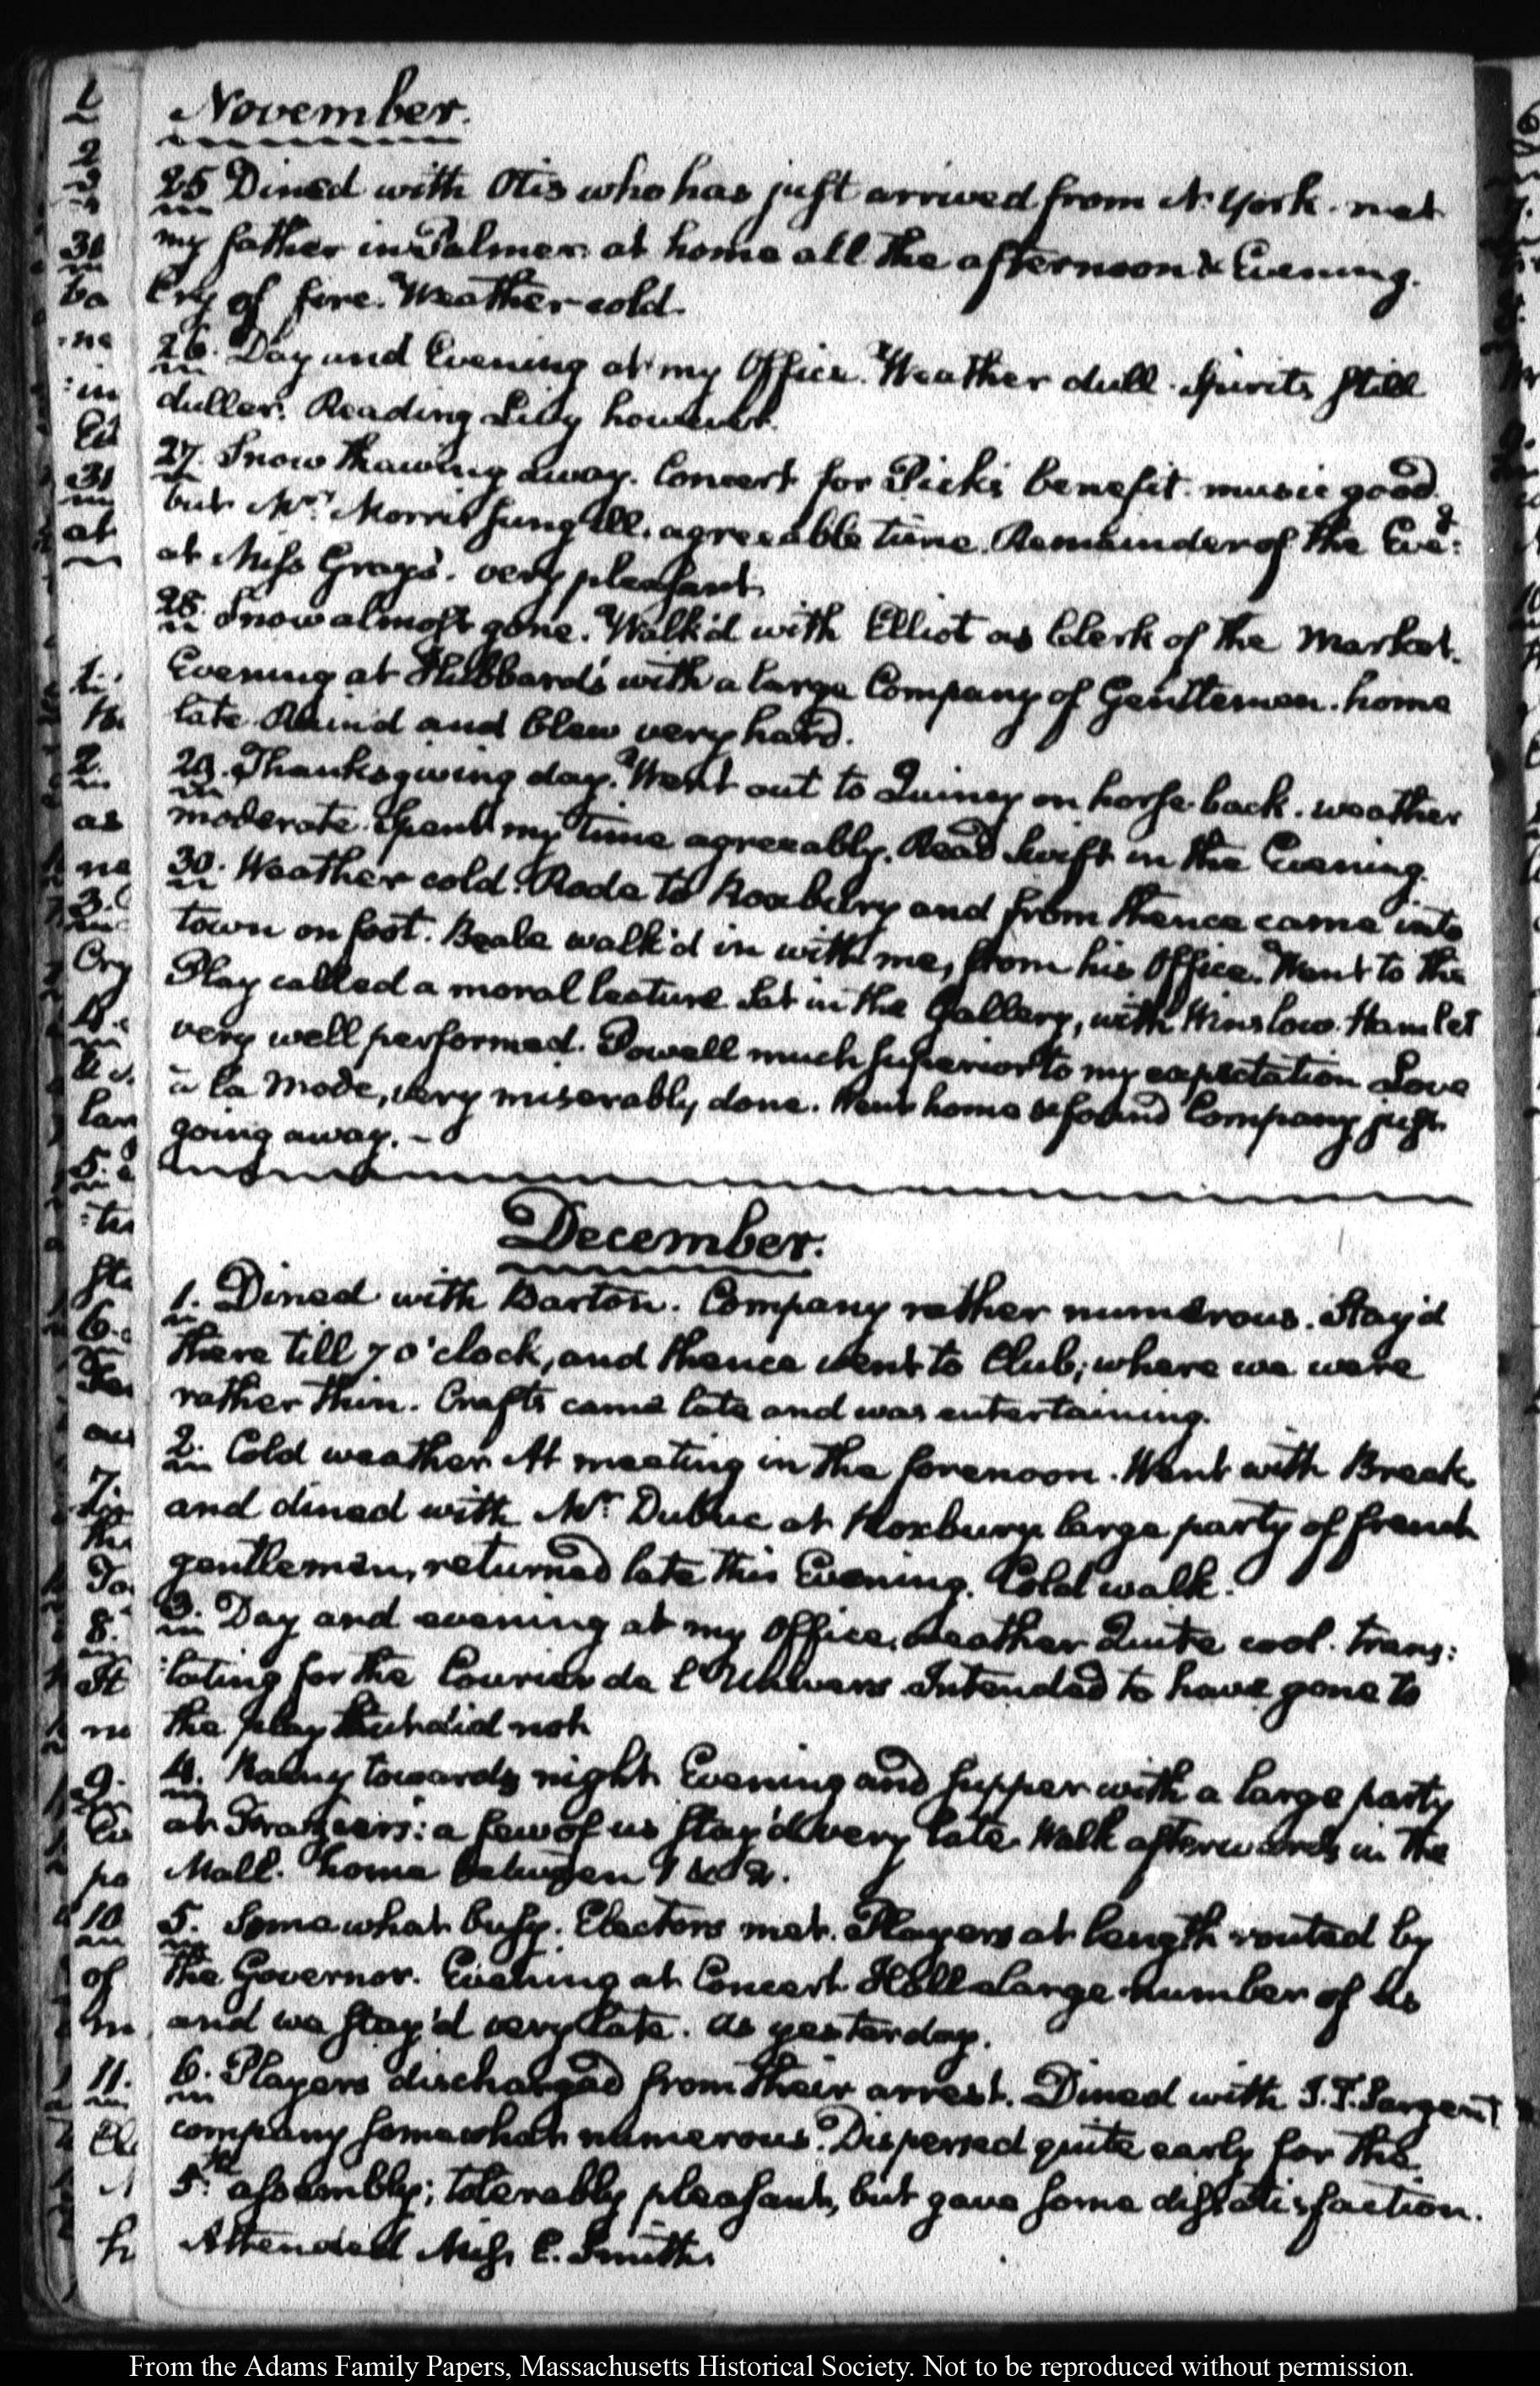 November.
25 Dined with Otis who has just arrived from N. York. met
my father in Palmer. at home all the afternoon & Evening.
Cry of fire. Weather cold.
26. Day and Evening at my Office. Weather dull. Spirits still
duller. Reading Livy however.
27. Snow thawing away. Concert for Pick's benefit. music good
but Mrs. Morris sung ill. agreeable time. Remainder of the Eve:g
at Miss Gray's. very pleasant.
28. Snow almost gone. Walk'd with Elliot as Clerk of the Market.
Evening at Hubbard's with a large Company of Gentlemen. home
late. Rain'd and blew very hard.
29. Thanksgiving day. Went out to Quincy on horse-back. weather
moderate. Spent my time agreeably. Read Swift in the Evening.
30. Weather cold. Rode to Roxbury and from thence came into
town on foot. Beale walk'd in with me, from his Office. Went to the
Play called a moral lecture. Sat in the Gallery, with Winslow. Hamlet
very well performed. Powell much superior to my expectation Love
à la Mode, very miserably done. Went home & found Company just
going away. –
December.
1. Dined with Barton. Company rather numerous. Stay'd
there till 7 o'clock, and thence went to Club; where we were
rather thin. Crafts came late and was entertaining.
2. Cold weather. At meeting in the forenoon. Went with Breck,
and dined with Mr. Dubuc at Roxbury. large party of french
gentlemen, returned late this Evening. Cold walk.
3. Day and evening at my Office, weather Quite cool. trans:
:lating for the Courier de l'Univers. Intended to have gone to
the play but did not
4. Rainy towards night. Evening and supper with a large party
at a few of us stay'd very late. Walk afterwards in the
Mall. home between 1 & 2.
5. Somewhat busy. Electors met. Players at length routed by
the Governor. Evening at Concert Hall a large number of us
and we stay'd very late. as yesterday.
6. Players discharged from their arrest. Dined with Sargent
company somewhat numerous. Dispersed quite early for the
5th. assembly; tolerably pleasant, but gave some dissatisfaction.
Attended Miss E. Smith.
From the Adams Family Papers, Massachusetts Historical Society. Not to be reproduced without permission.